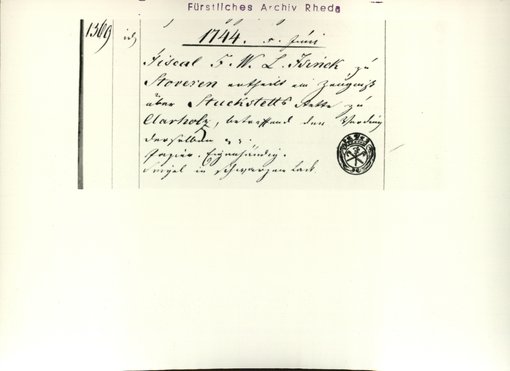 Fürstliches Archiv Rheda
1369
1744. Juni
Fiscal F. W. L. Isinck zu
Stoveren ertheilt ein Zeugniß
über Stuckstetts Stette zu
Clarholz, betreffend den Verding
derselben
Papier. Eigenhändig.
Siegel in schwarzen Lack.